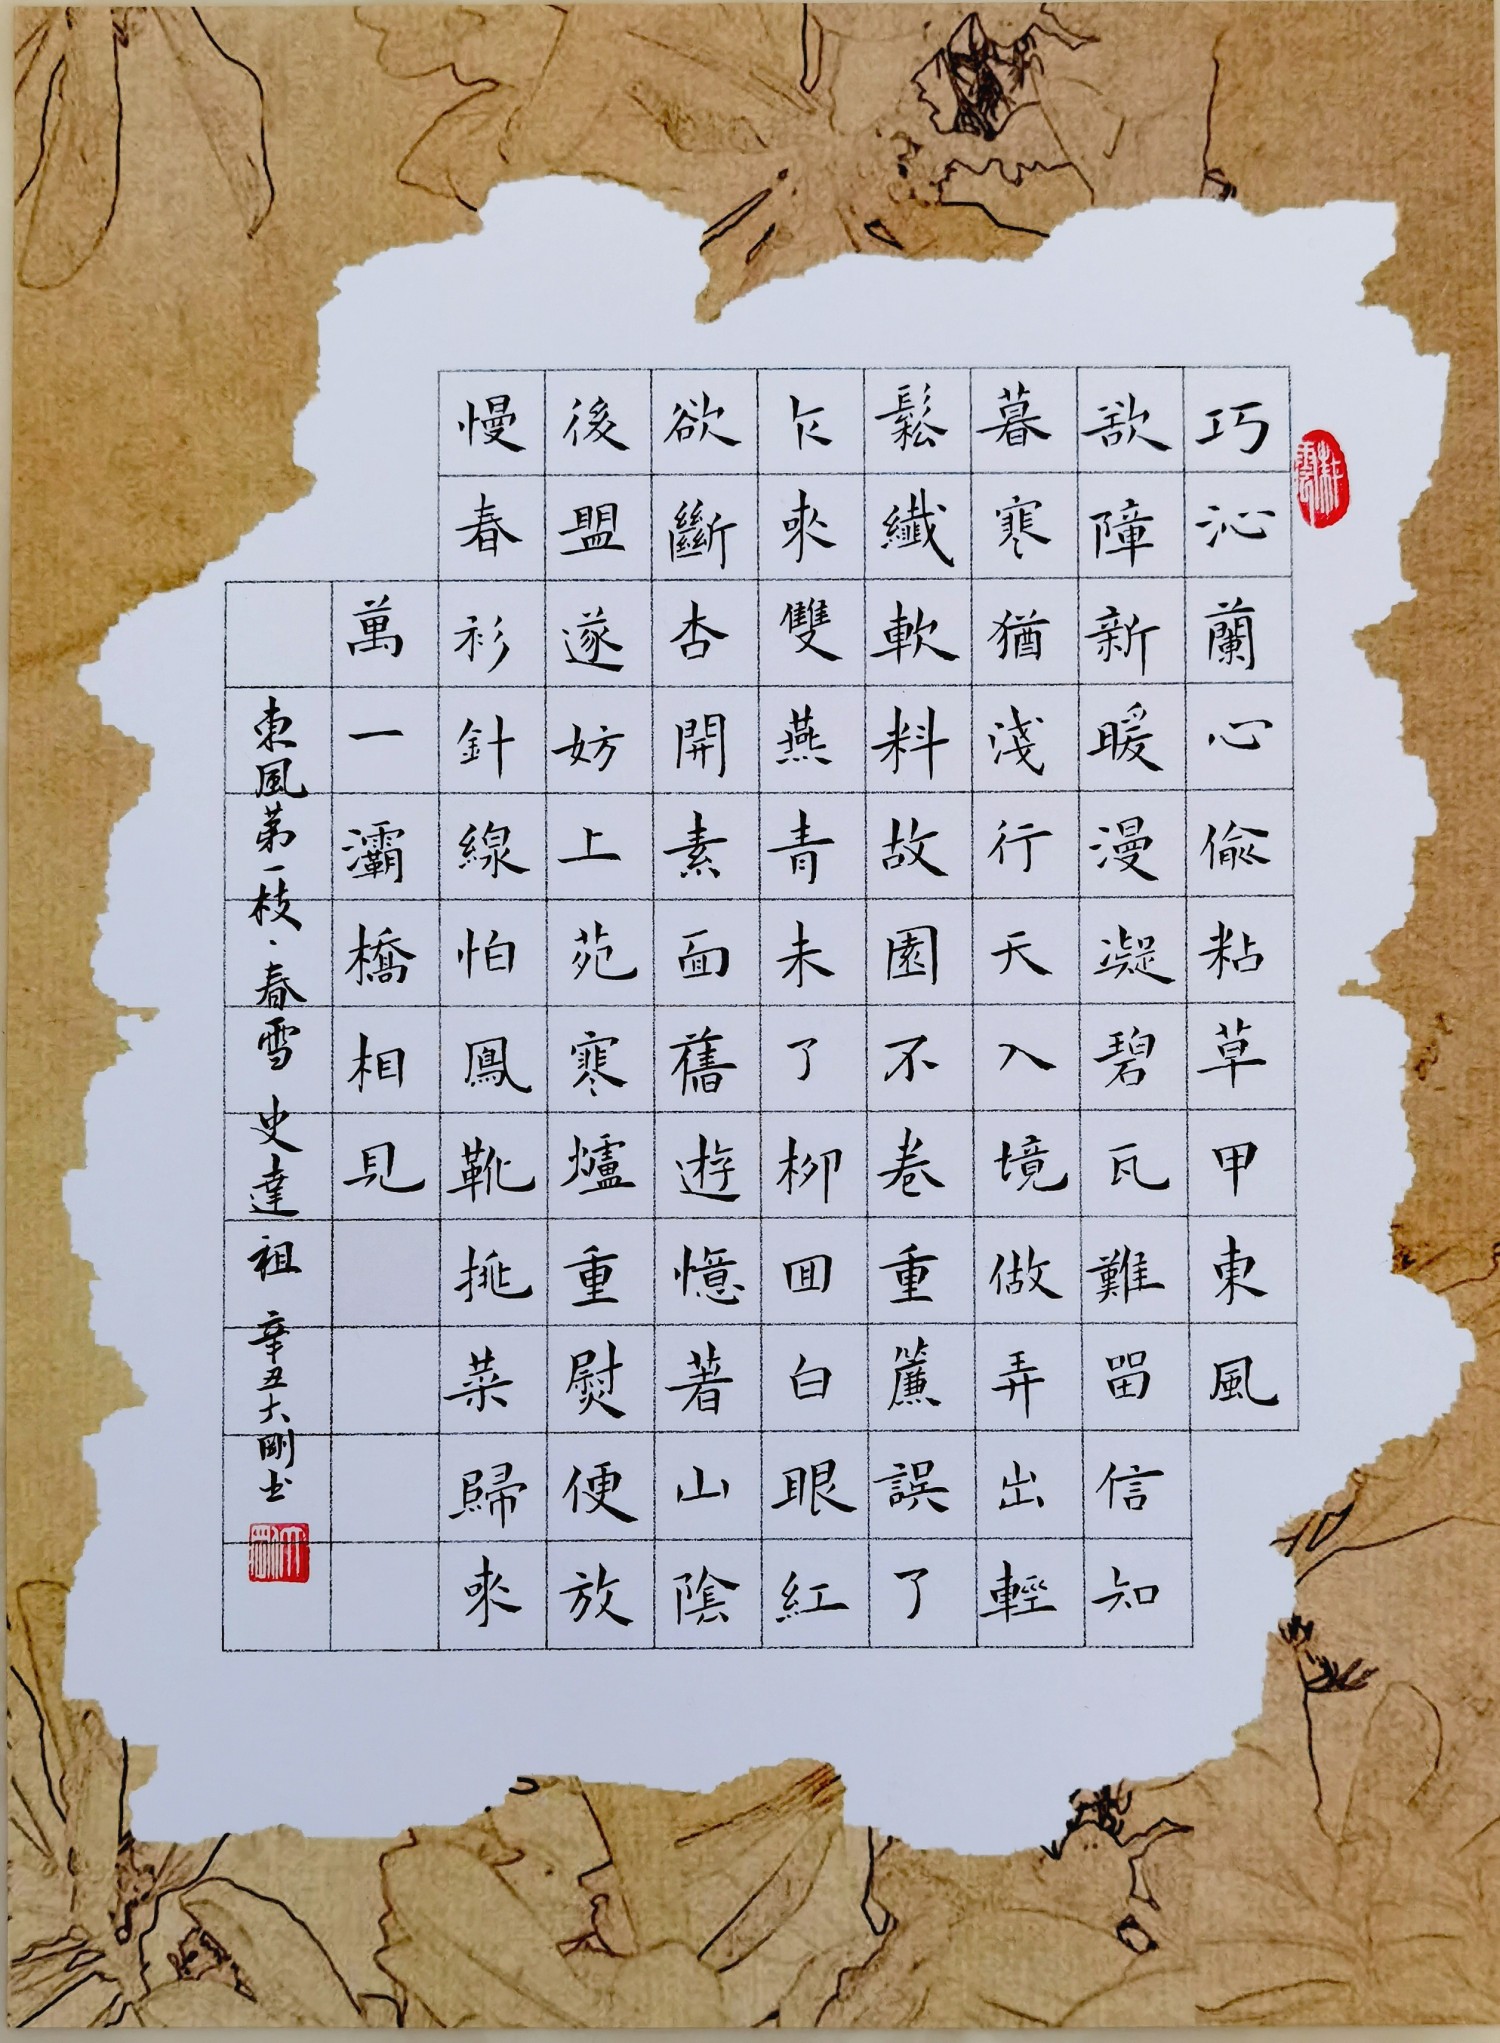 巧沁蘭心偷粘草甲東風
欲障新暖漫凝碧瓦難留信知
暮寒猶淺行天入境做弄出輕
鬆纖軟料故園不卷重簾誤了
乍來雙燕青未了柳囬白眼紅
欲斷杏開素面舊遊憶著山陰
後盟遂妨上苑寒爐重熨便放
慢春衫針線怕鳳靴挑菜歸來
萬一灞橋相見
東風第一枝·春雪 史達祖 辛丑大剛书
大剛